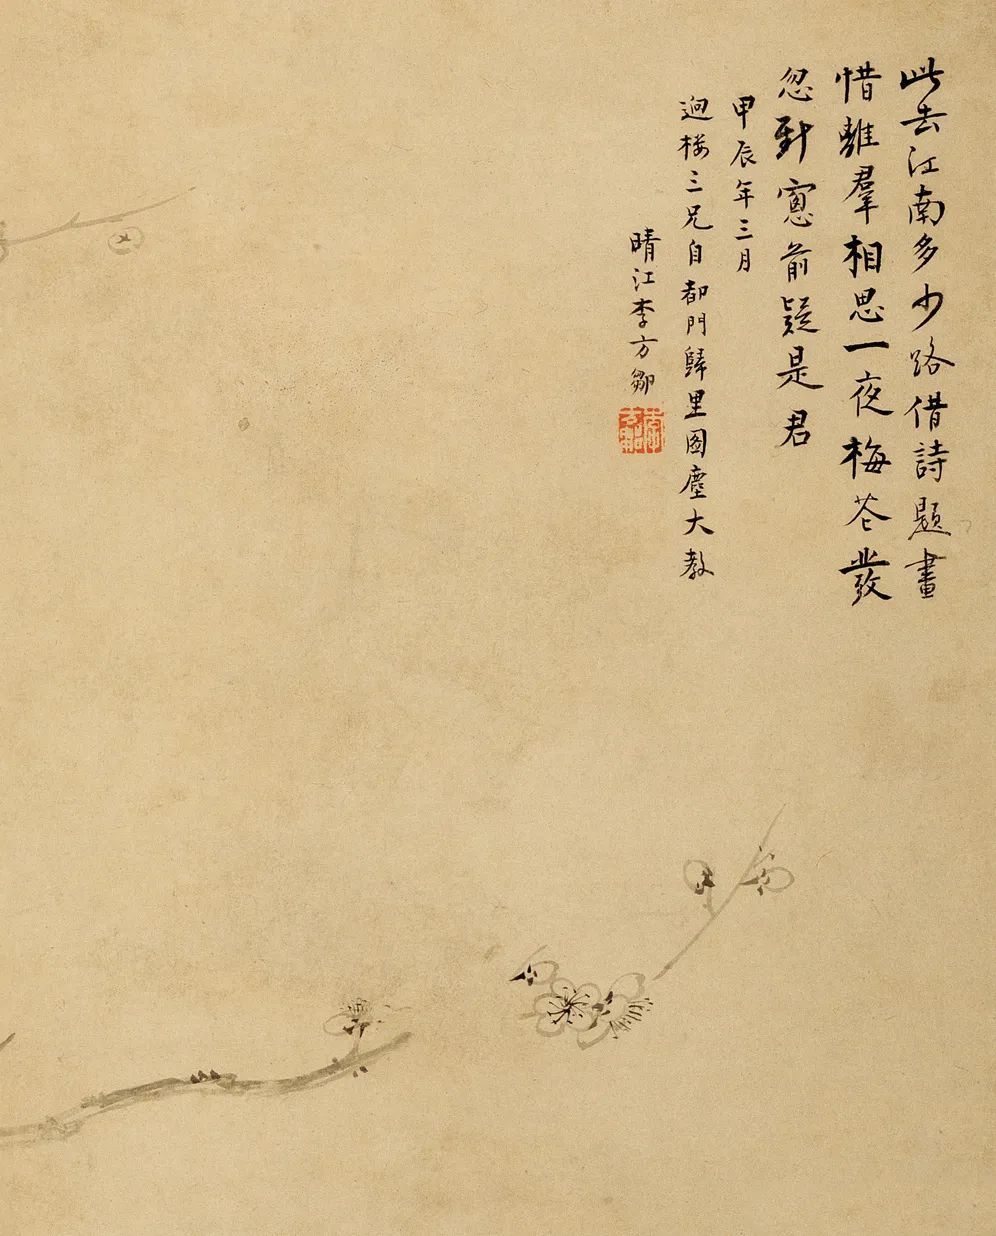 此去江南多少路借詩題畫
惜離羣相思一夜梅花發
忽到窻前疑是君
甲辰年三月
三兄自都門歸里圖塵大教
晴江李方